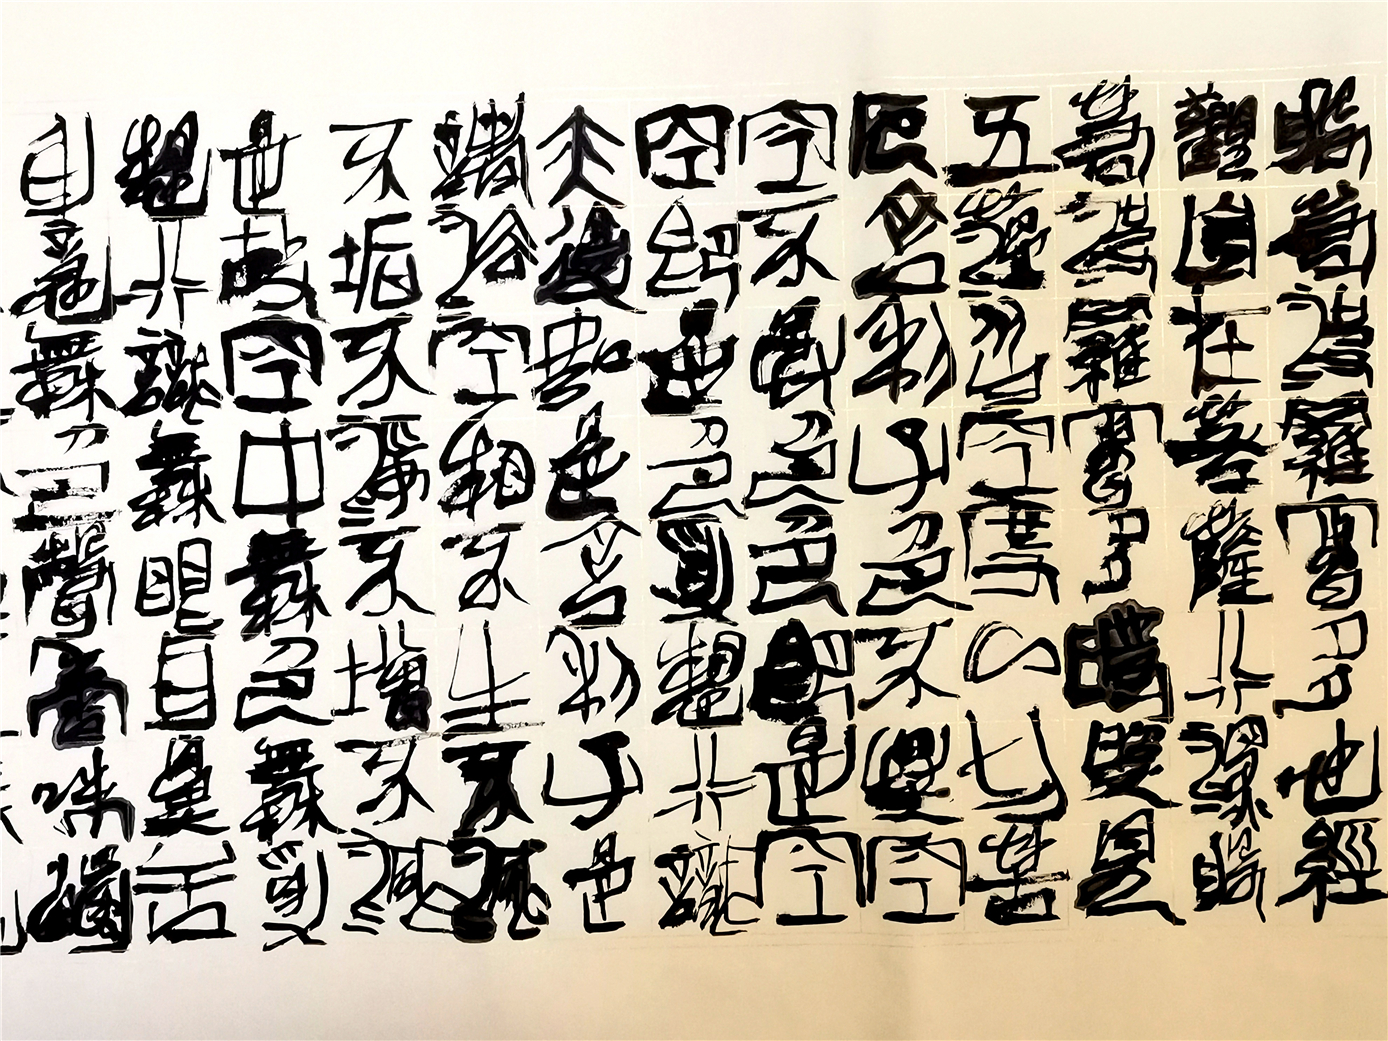 般若波羅蜜多心經
觀自在菩薩行深般
若波羅蜜多時照見
五蘊皆空度一切苦
厄舍利子色不異空
空不異色色即是空
空即是色受想行識
亦復如是舍利子是
諸法空相不生不滅
不垢不淨不增不減
是故空中無色無受
想行識無眼耳鼻舌
身意無色聲香味觸